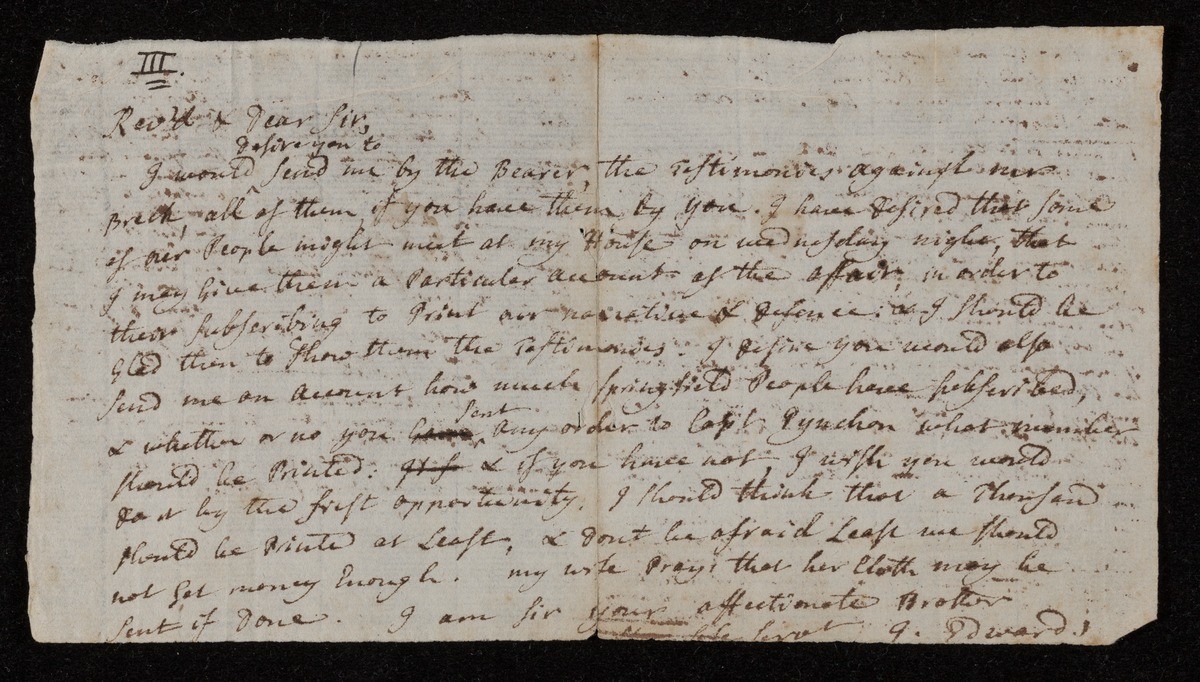 III.
Rev'd & Dear Sir,
desire you to
I would ^ send me by the Bearer, the Testimonies against mr
Breck, all of them, if you have them by you. I have desired that some
of our People might meet at my House on wednesday night, that
I may Give them a Particular account of the affair, in order to
their subscribing to Print our narrative & defence: & I should be
Glad then to show them the Testimonies. I desire you would also
send me an account how much Springfield People have subscribed,
sent
& whether or no you ^ any order to Capt. Pynchon what number
should be Printed. & if you have not, I wish you would
do it by the first opportunity. I should think that a Thousand
should be Printed at Least, & don't be afraid Least we should
not Get money Enough. my wife Prays that her Cloth may be
sent if Done. I am Sir your affectionate Brother
servt J. Edwards